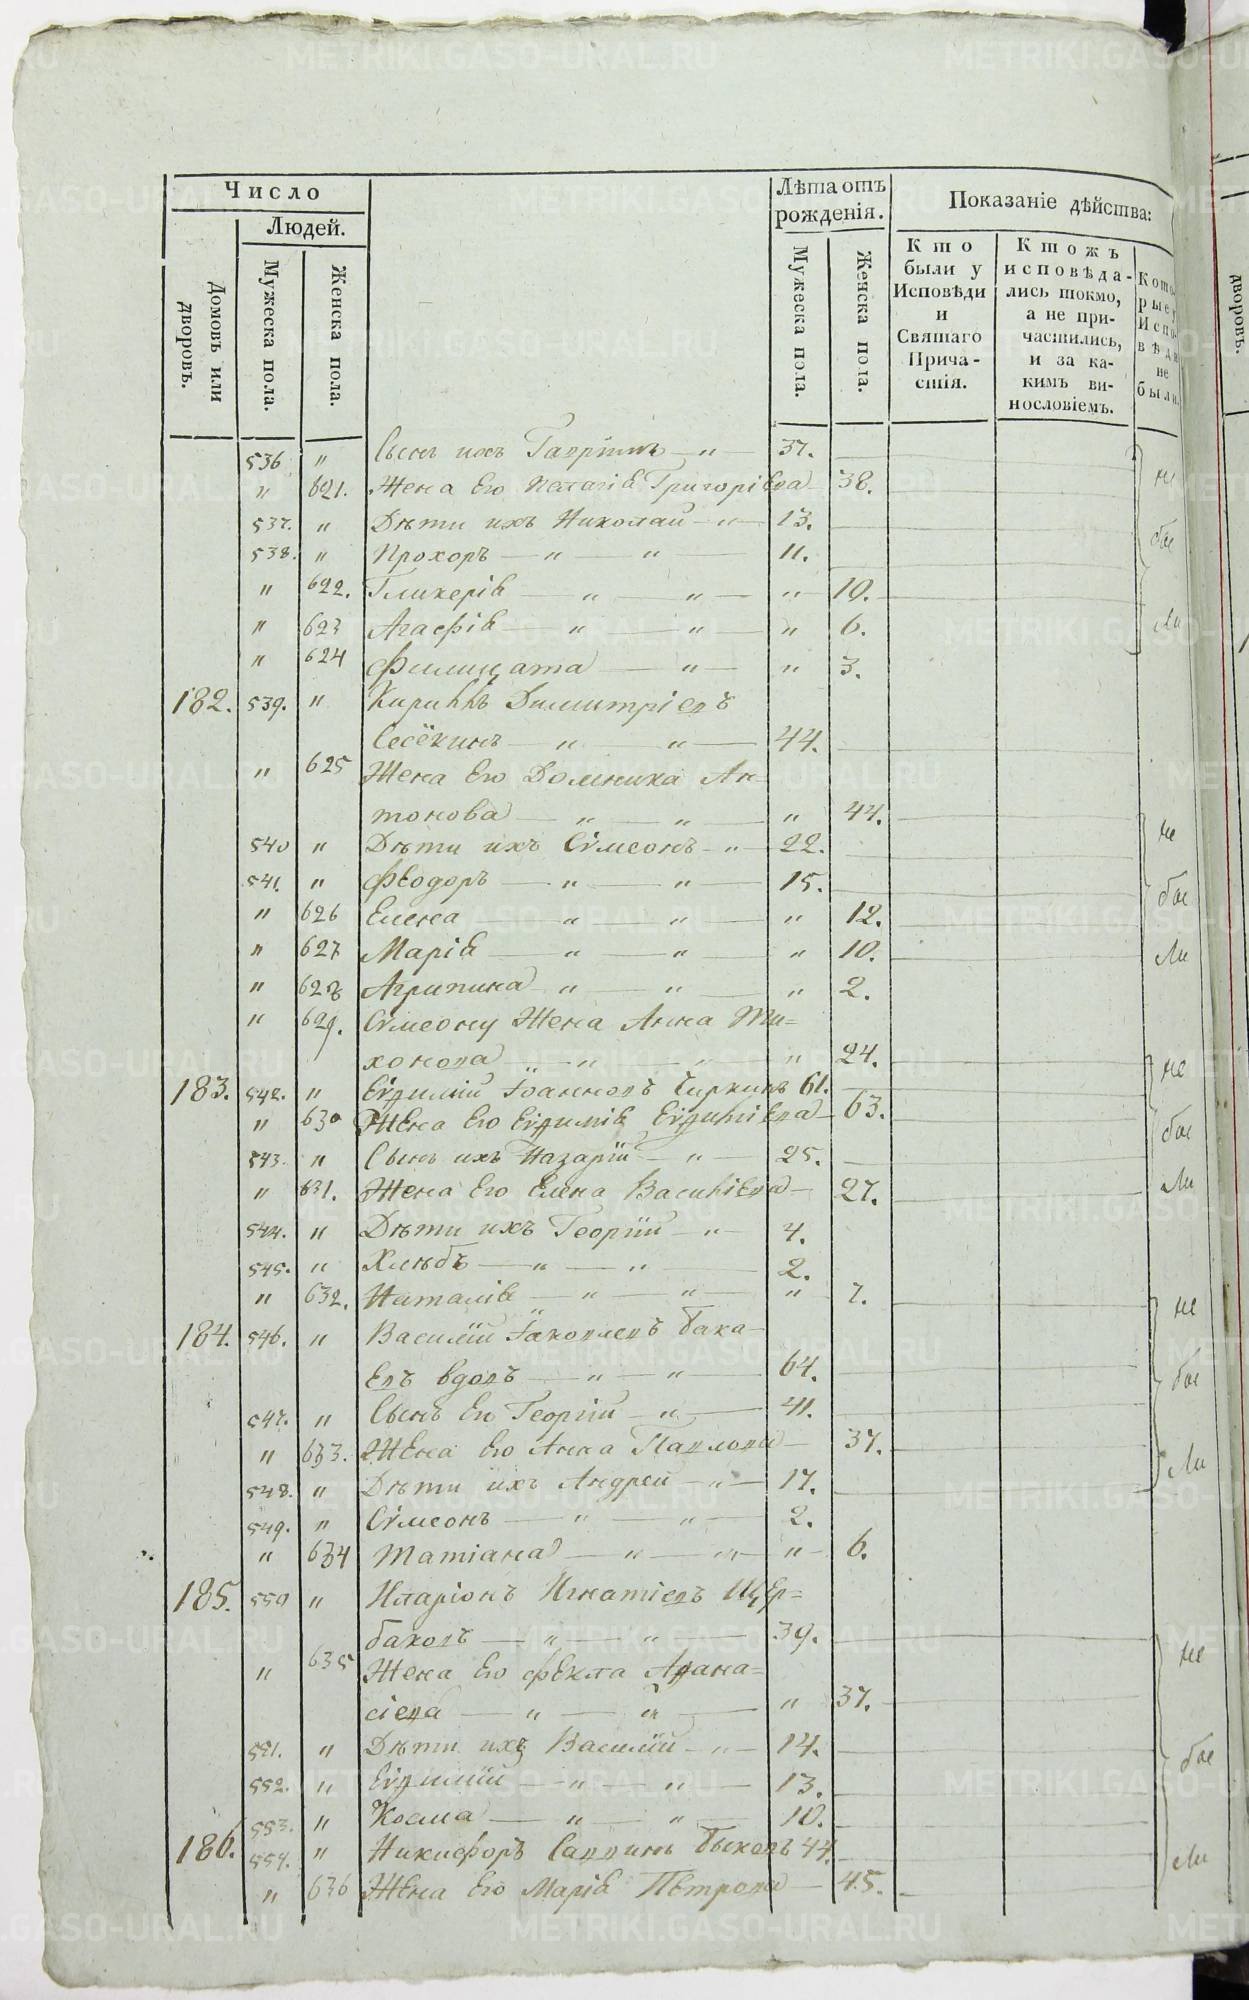 Число
Людей.
Домовъ или дворовъ.
Мужеска пола.
Женска пола.
Лѣта отъ рожденія.
Мужеска пола.
Женска пола.
Показаніе дѣйства:
Кто были у Исповѣди и Святаго Причастія.
Ктожъ исповѣдались токмо, а не причастились, и за какимъ винословіемъ.
Которые у Исповѣди не были.
дворовъ.
536 " Сынъ ихъ Гавріилъ — " — 37.
" 621. Жена Его Пелагія Григоріева 38.
537. " Дѣти ихъ Николай — " — 13.
538. " Прохоръ — " — " — 11.
" 622. Гликерія — " — " — " 10.
" 623 Агафія — " — " — " 6.
" 624 Филицата — " — " 3.
не были
182. 539. " Кириллъ Димитріевъ
Сесёкинъ — " — " — 44.
" 625 Жена Его Домника Ан-
тонова — " — " — " 44.
540 " Дѣти ихъ Сѵмеонъ — " — 22.
541. " Феодоръ — " — " — 15.
" 626 Елена — " — " — " 12.
" 627 Марія — " — " — " 10.
" 628 Агрипина — " — " — " 2.
" 629. Сѵмеону Жена Анна Ти=
хонова — " — " — " 24.
не были
183. 542. " Еѵфимій Іоанновъ Чиркинъ 61.
" 630 Жена Его Еѵфимія Еѵфиміева 63.
543. " Сынъ ихъ Назарій — " — 25.
" 631. Жена Его Елена Василіева — 27.
544. " Дѣти ихъ Георгій — " — 4.
545. " Хлѣбъ — " — " — 2.
" 632. Наталія — " — " — " 7.
не были
184. 546. " Василій Іаковлевъ Бака-
евъ вдовъ — " — " — 64.
547. " Сынъ Его Георгій — " — 41.
" 633. Жена Его Анна Павлова — 37.
548. " Дѣти ихъ Андрей — " — 17.
549. " Сѵмеонъ — " — " — 2.
" 634 Татіана — " — " — " 6.
не были
185. 550 " Иларіонъ Игнатіевъ Щер=
баковъ — " — " — 39.
" 635 Жена Его Фекла Афана=
сіева — " — " — " 37.
551. " Дѣти ихъ Василій — " — 14.
552. " Еѵфимій — " — " — 13.
553. " Косма — " — " — 10.
не были
186. 554. " Никифоръ Саввинъ Быковъ 44.
" 636 Жена Его Марія Петрова — 45.
METRIKI.GASO-URAL.RU